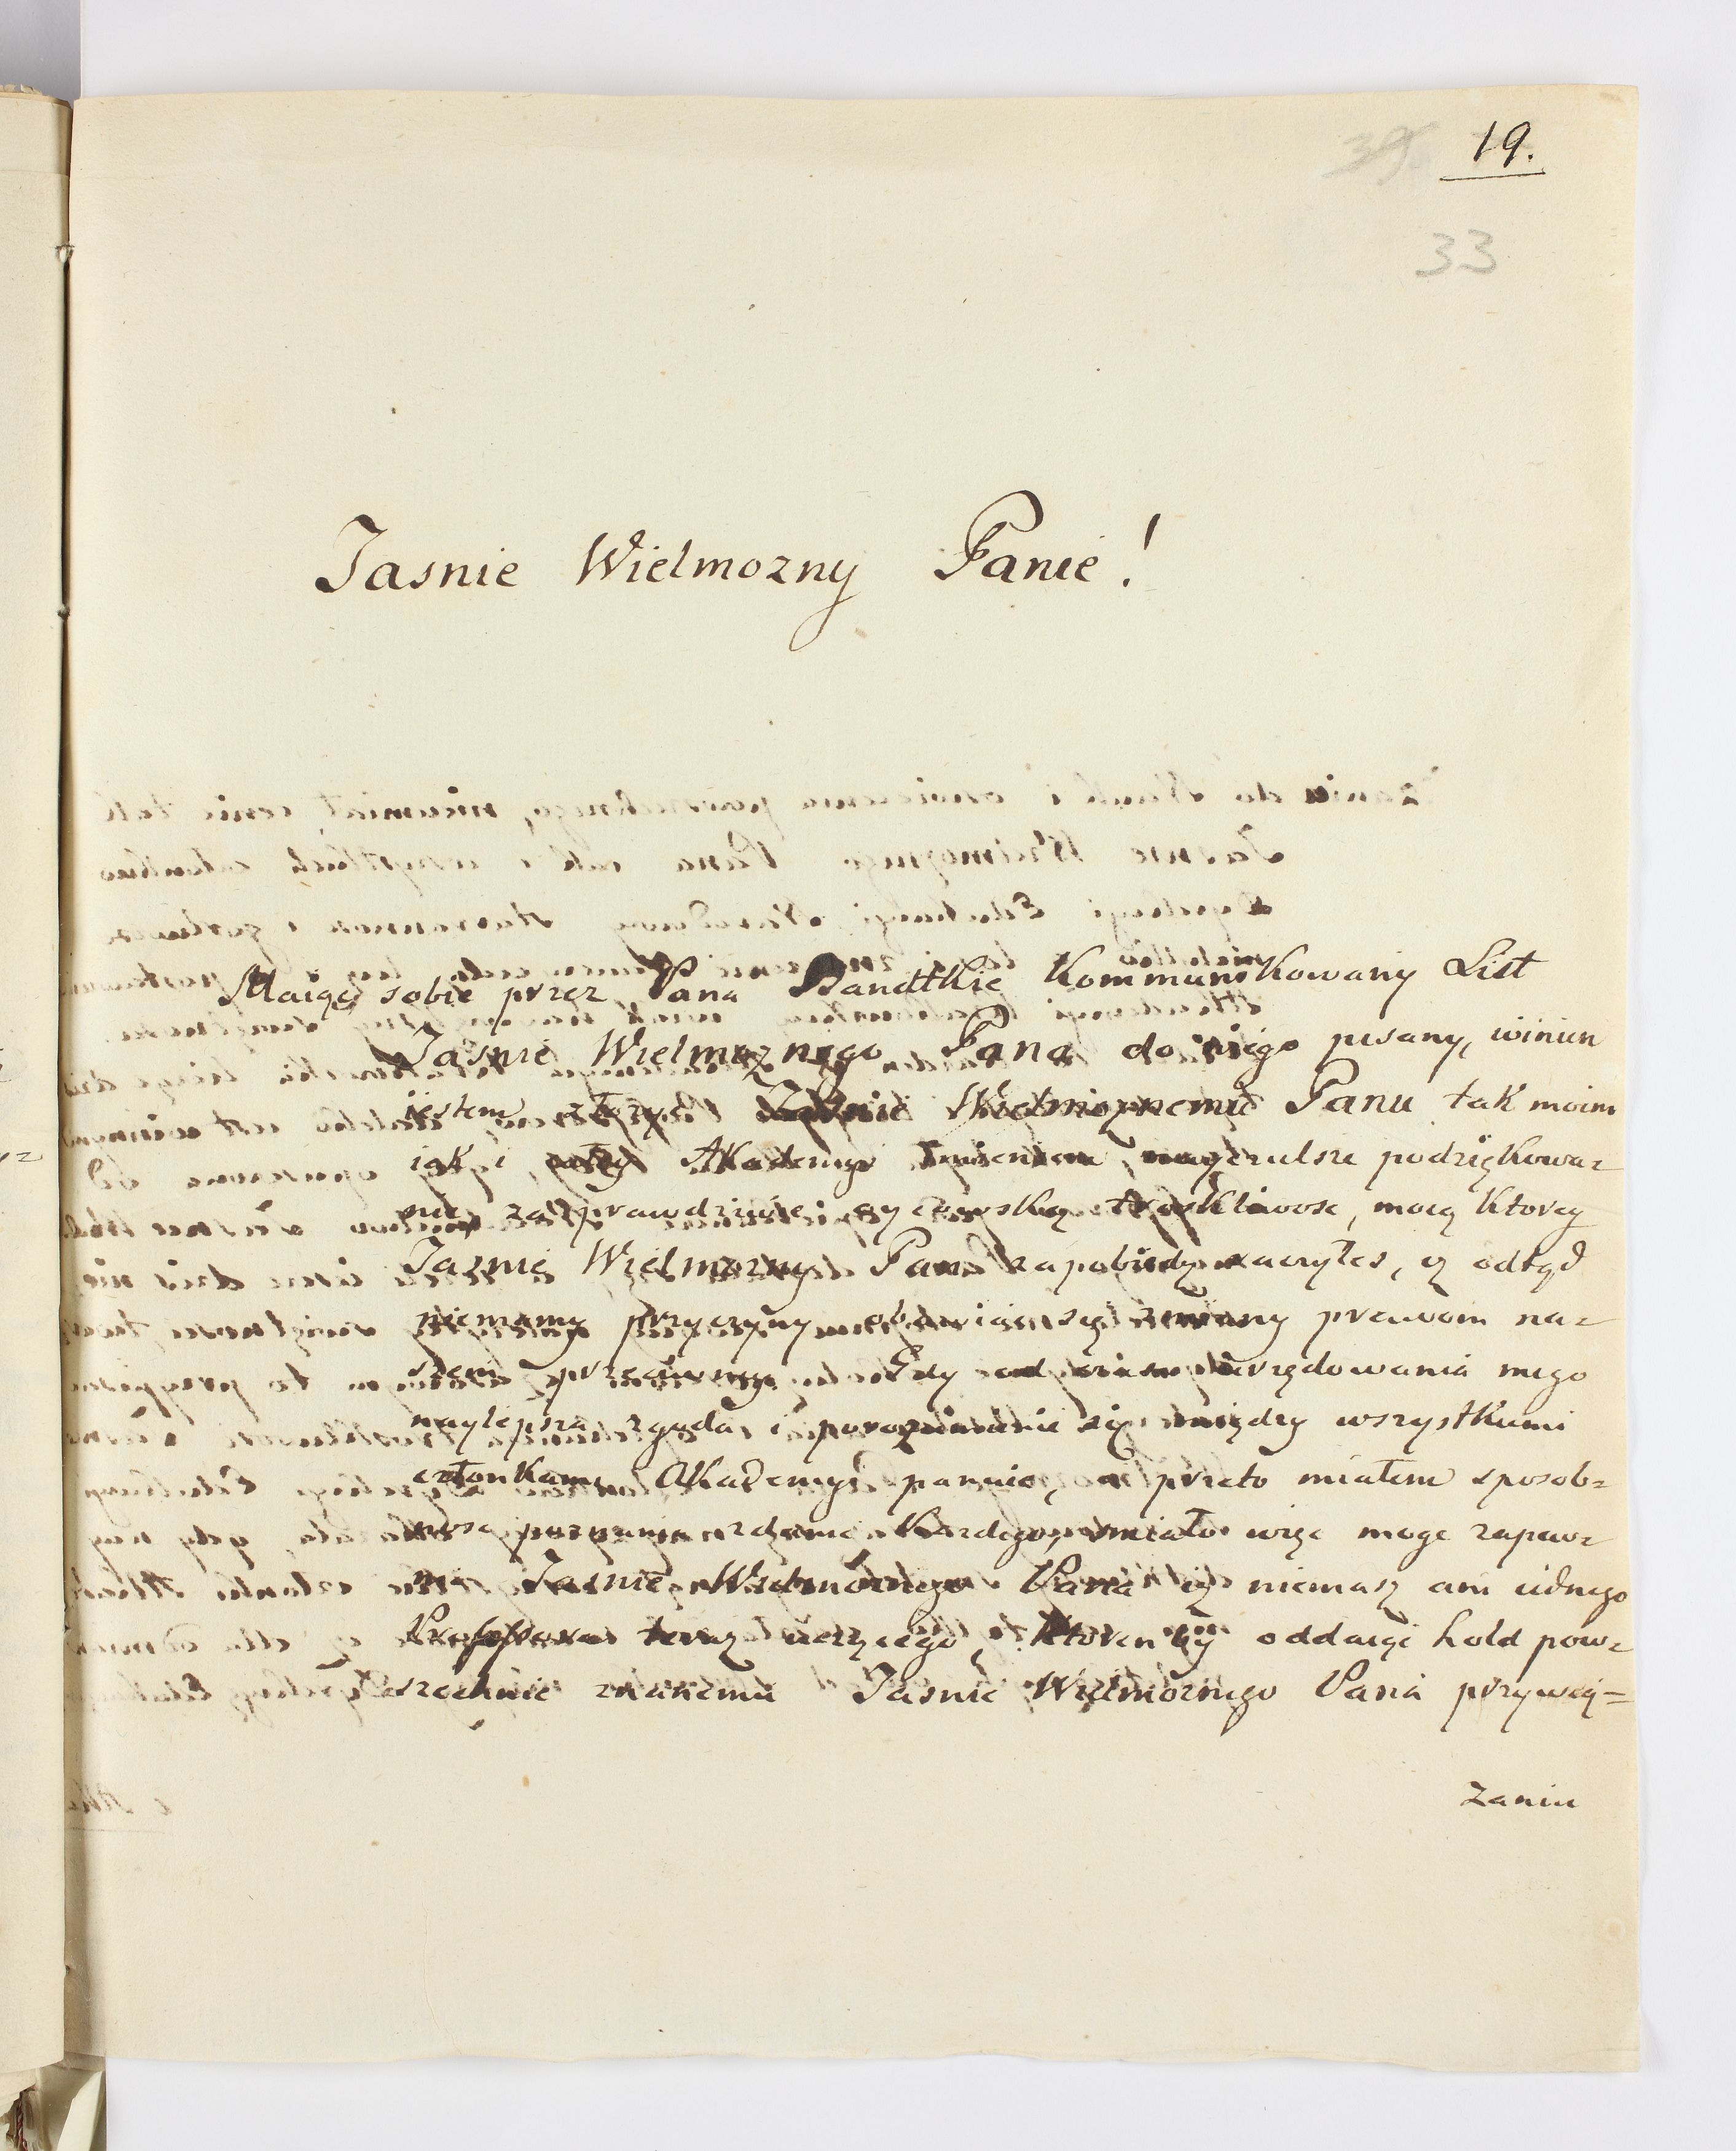 19.
33
Jasnie Wielmozny Panie!
Maiąc sobie przez Pana Bandtkie Kommunikowany List
Jasnie Wielmoznego Pana do niego pisany, winien
iestem złozyc Jasnie Wielmoznemu Panu tak moim
iak i całey Akademyi Imieniem, nayczulsze podziękowa=
nie za prawdziwie oycowską troskliwosc, mocą ktorey
Jasnie Wielmozny Pan zapobiedz raczyłes, iz odtąd
niemamy przyczyny obawiac się zmiany prawom na=
szem przeciwney. Gdy od czasu urzędowania mego
naylepsza zgoda i porozumienie się między wszystkiemi
członkami Akademyi panuie, a przeto miałem sposob=
nosc poznania zdanie kazdego, smiało więc moge zapew=
nic Jasnie Wielmoznego Pana iz niemasz ani iednego
Professora teraz uczącego, ktoren by oddaiąc hold pow=
szechnie znanemu Jasnie Wielmoznego Pana przywią=
zaniu